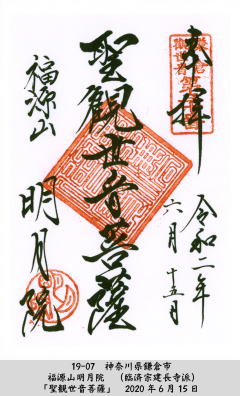 奉拝
令和二年
六月十五日
聖観世音菩薩
福源山
明月院
19-07 神奈川県鎌倉市
福源山明月院 （臨済宗建長寺派）
「聖観世音菩薩」 2020年6月15日